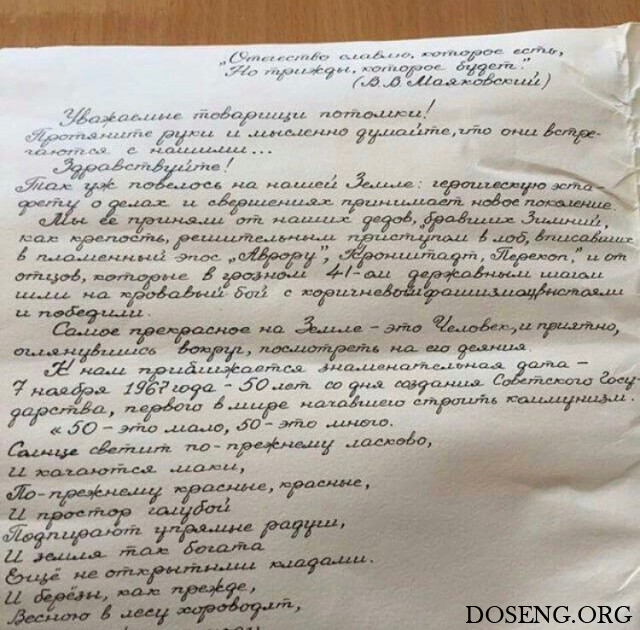 „Отечество славлю, которое есть,
Но трижды, которое будет."
(В.В. Маяковский)
Уважаемые товарищи потомки!
Протяните руки и мысленно думайте, что они встре-
чаются с нашими...
Здравствуйте!
Так уж повелось на нашей Земле: героическую эста-
фету о делах и свершениях принимает новое поколение.
Мы её приняли от наших дедов, бравших Зимний,
как крепость, решительным приступом в лоб, вписавших
в пламенный эпос „Аврору", Кронштадт, Перекоп," и от
отцов, которые в грозном 41-ом державным шагом
шли на кровавый бой с коричневым фашизмом, выстояли
и победили.
Самое прекрасное на Земле - это Человек, и приятно,
оглянувшись вокруг, посмотреть на его деяния.
К нам приближается знаменательная дата -
7 ноября 1967 года - 50 лет со дня создания Советского Госу-
дарства, первого в мире начавшего строить коммунизм.
« 50 - это мало, 50 - это много.
Солнце светит по-прежнему ласково,
И качаются маки,
По-прежнему красные, красные,
И простор голубой
Подпирают упрямые радуги,
И земля так богата
Ещё не открытыми кладами.
И берёзы, как прежде,
Весною в лесу хороводят,
DOSENG.ORG